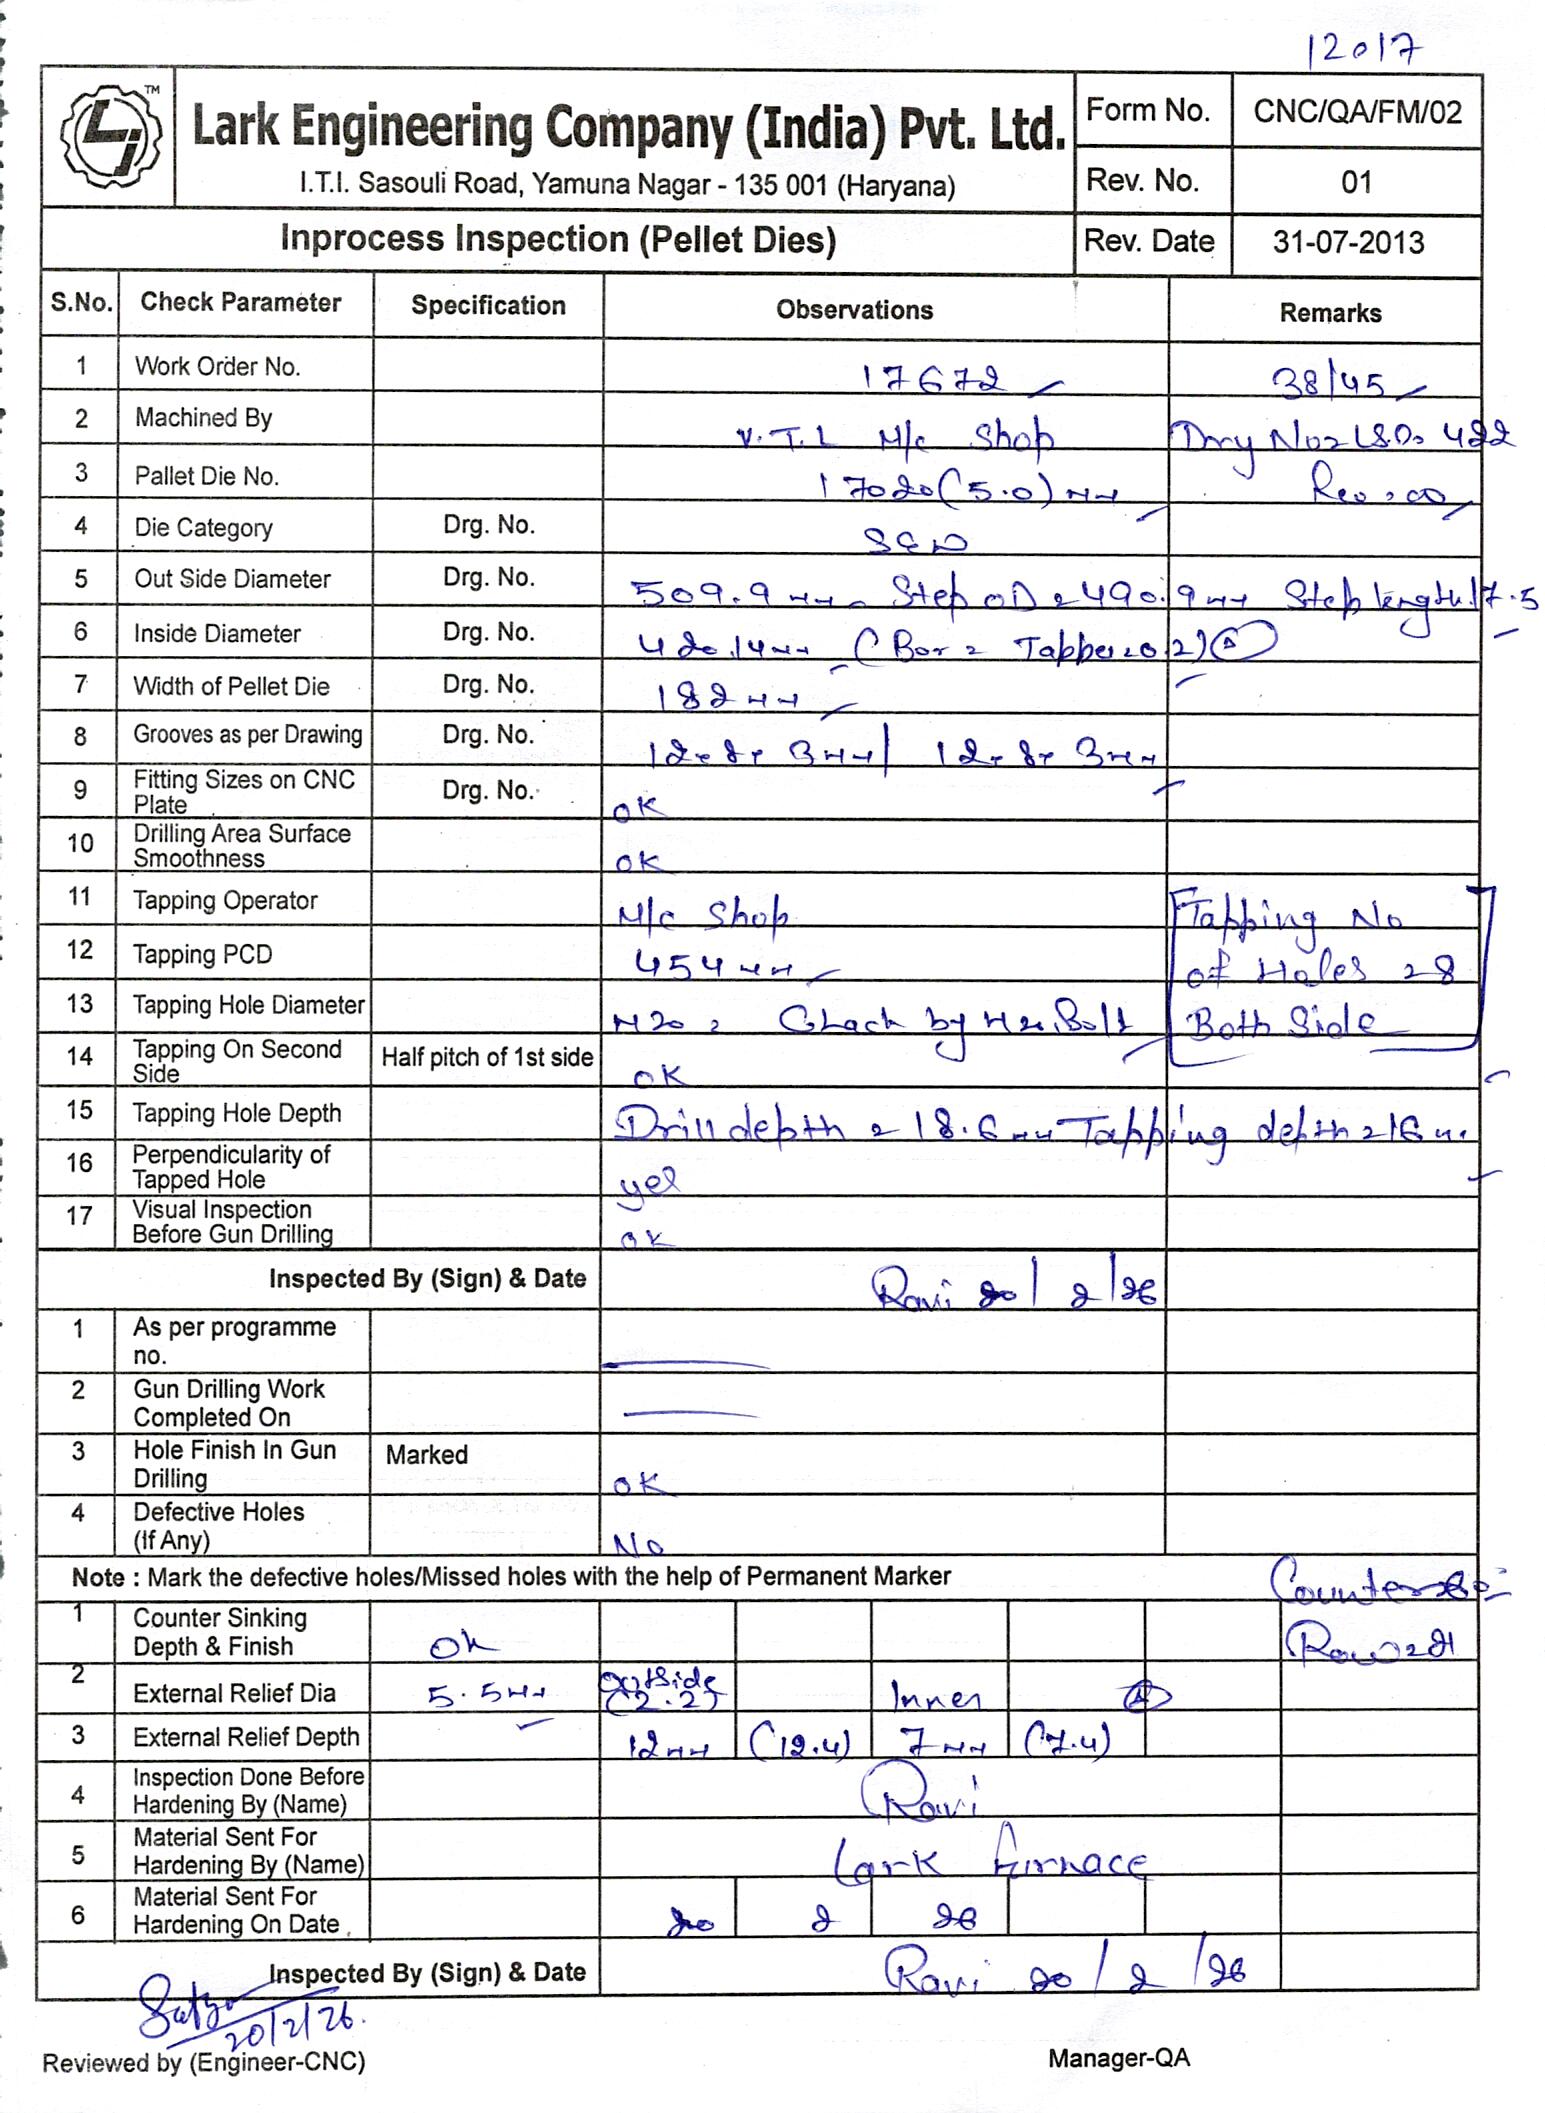 12017
TM
Lark Engineering Company (India) Pvt. Ltd.
I.T.I. Sasouli Road, Yamuna Nagar - 135 001 (Haryana)
Form No. CNC/QA/FM/02
Rev. No. 01
Inprocess Inspection (Pellet Dies) Rev. Date 31-07-2013
S.No. Check Parameter Specification Observations Remarks
1 Work Order No. 17672 38/45
2 Machined By V.T.L M/c Shop 422
3 Pallet Die No. 17020 (5.0) mm Rev.
4 Die Category Drg. No.
5 Out Side Diameter Drg. No. 509.9 mm Step OD = 490.9 mm Step length 17.5
6 Inside Diameter Drg. No. 420.14 mm (Bor = Tapper = 0.2) A
7 Width of Pellet Die Drg. No. 182 mm
8 Grooves as per Drawing Drg. No. 3mm | 3mm
9 Fitting Sizes on CNC Plate Drg. No. OK
10 Drilling Area Surface Smoothness OK
11 Tapping Operator M/c Shop Tapping No
12 Tapping PCD 454 mm of Holes = 8
13 Tapping Hole Diameter M20 = Chack by M20 Bolt Both Side
14 Tapping On Second Side Half pitch of 1st side OK
15 Tapping Hole Depth Drill depth = 18.6 mm Tapping depth = 16 m.
16 Perpendicularity of Tapped Hole yes
17 Visual Inspection Before Gun Drilling OK
Inspected By (Sign) & Date Ravi 20/2/26
1 As per programme no.
2 Gun Drilling Work Completed On
3 Hole Finish In Gun Drilling Marked OK
4 Defective Holes (If Any) No
Note : Mark the defective holes/Missed holes with the help of Permanent Marker
1 Counter Sinking Depth & Finish Ok Row = 21
2 External Relief Dia 5.5mm outside (2.2) Inner A
3 External Relief Depth 12mm (12.4) 7mm (7.4)
4 Inspection Done Before Hardening By (Name) Ravi
5 Material Sent For Hardening By (Name) Lark Furnace
6 Material Sent For Hardening On Date 20 2 26
Inspected By (Sign) & Date Ravi 20/2/26
20/2/26.
Reviewed by (Engineer-CNC) Manager-QA